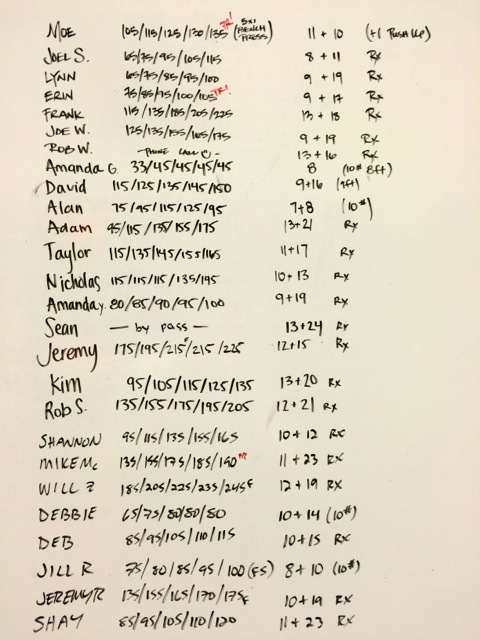 MOE 105/115/125/130/135 PR! (5x1 BENCH PRESS) 11 + 10 (+1 PUSH UP)
JOEL S. 65/75/95/105/115 8 + 11 Rx
LYNN 65/75/85/95/100 9 + 19 Rx
ERIN 75/85/95/100/105 PR! 9 + 17 Rx
FRANK 115/135/185/205/225 13 + 18 Rx
JOE W. 125/135/155/165/175 9 + 19 Rx
ROB W. - PHONE CALL - 13 + 16 Rx
Amanda G. 33/45/45/45/45 8 (10# 8ft)
David 115/125/135/145/150 9+16 (9ft)
Alan 75/95/115/125/95 7+8 (10#)
Adam 95/115/135/155/175 13+21 Rx
Taylor 115/135/145/155/165 11+17 Rx
Nicholas 115/115/115/135/195 10+13 Rx
Amanda Y. 80/85/90/95/100 9+19 Rx
Sean — by pass — 13+24 Rx
Jeremy 175/195/215/215/225 12+15 Rx
Kim 95/105/115/125/135 13+20 Rx
Rob S. 135/155/175/195/205 12+21 Rx
SHANNON 95/115/135/155/165 10+12 Rx
MIKE Mc 135/155/175/185/190 PR 11 + 23 Rx
WILL Z 185/205/225/235/245F 12 + 19 Rx
DEBBIE 65/75/80/80/80 10+14 (10#)
DEB 85/95/105/110/115 10+15 Rx
JILL R 75/80/85/95/100 (FS) 8+10 (10#)
JEREMY R 135/155/165/170/175F 10+19 Rx
SHAY 85/95/105/110/120 11 + 23 Rx